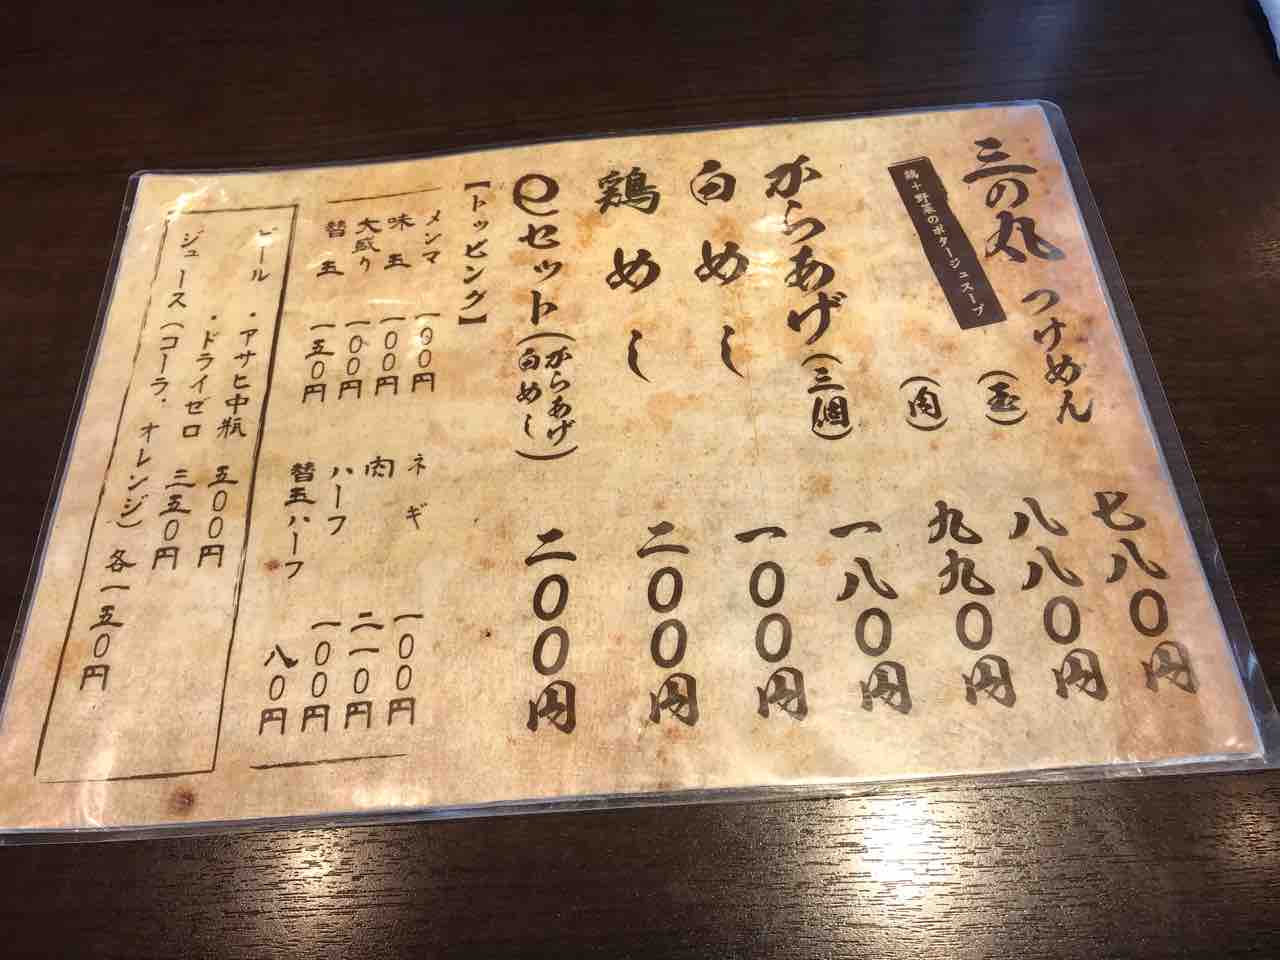 三の丸 つけめん 七八〇円
鶏+野菜のポタージュスープ
(玉) 八八〇円
(肉) 九九〇円
からあげ(三個) 一八〇円
白めし 一〇〇円
鶏めし 二〇〇円
@セット(からあげ 白めし) 二〇〇円
【トッピング】
メンマ 一〇〇円
味玉 一〇〇円
大盛り 一〇〇円
替玉 一五〇円
ネギ 一〇〇円
肉 二一〇円
ハーフ 一〇〇円
替玉ハーフ 八〇円
ビール ・アサヒ中瓶 五〇〇円
・ドライゼロ 三五〇円
ジュース(コーラ・オレンジ) 各一五〇円